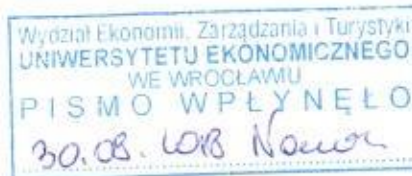 Wydział Ekonomii, Zarządzania i Turystyki
UNIWERSYTETU EKONOMICZNEGO
WE WROCŁAWIU
PISMO WPŁYNĘŁO
30.08.